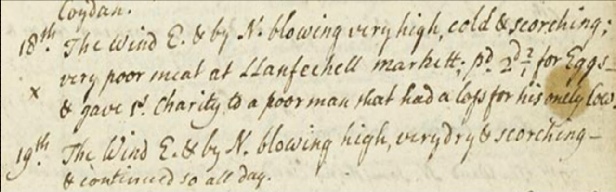 Coydan.
18th. The Wind E. & by N. blowing very high, cold & scorching;
very poor meat at Llanfechell markett; pd. 2d ½ for Eggs
x & gave 1s. Charity to a poor man that had a loss for his onely Cow
19th. The Wind E. & by N. blowing high, very dry & scorching—
& continued so all day.